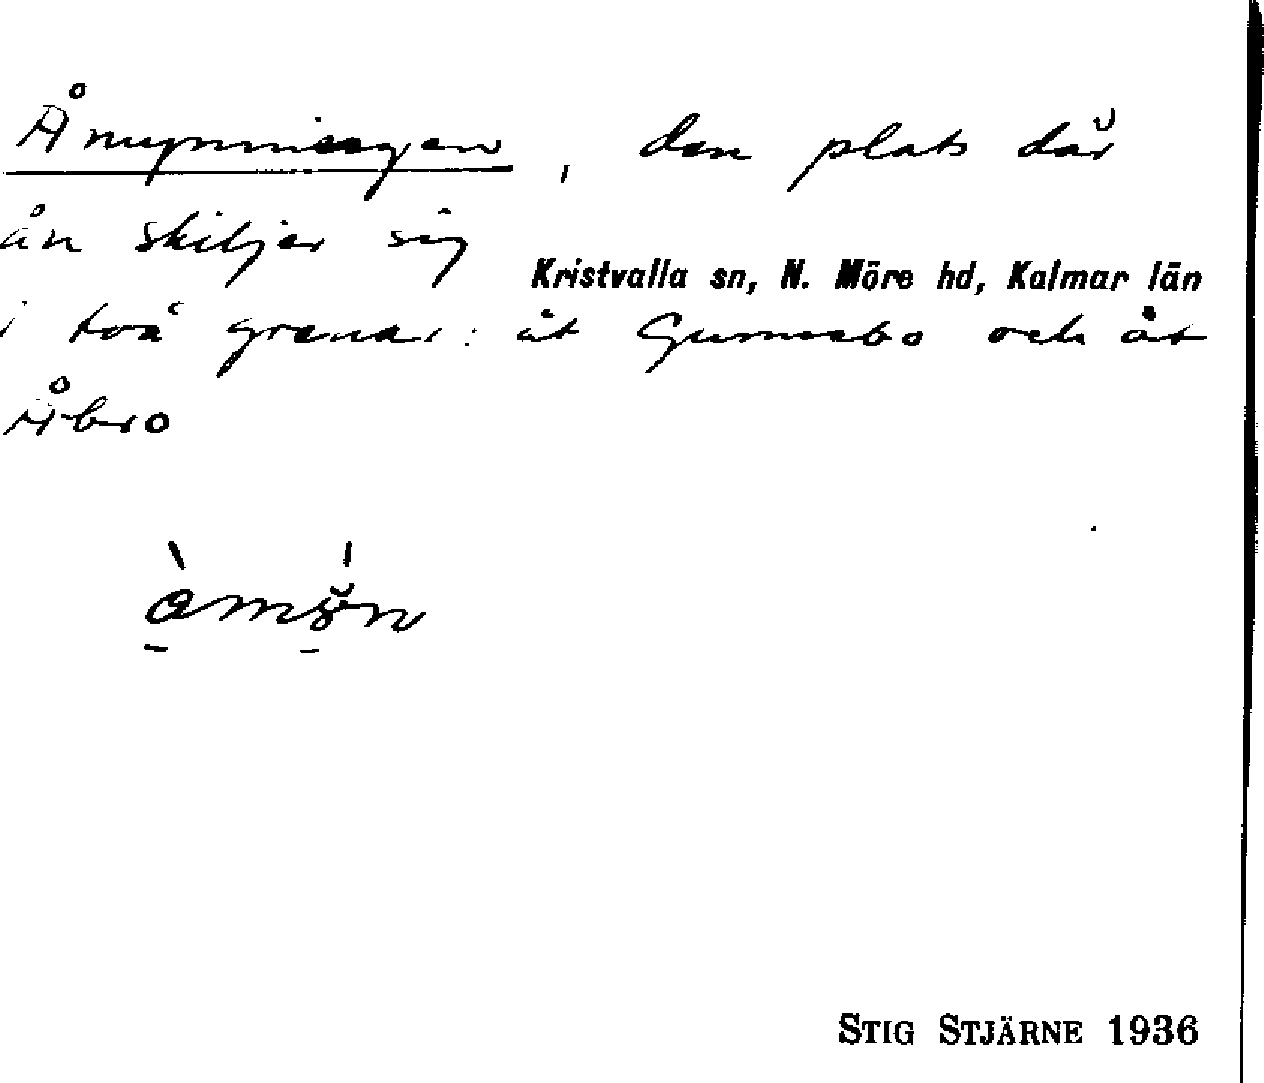 Åmynningen, den plats där
ån skiljer sig
Kristvalla sn, N. Möre hd, Kalmar län
i två grenar: åt Gunnabo och åt
Åbro
STIG STJÄRNE 1936